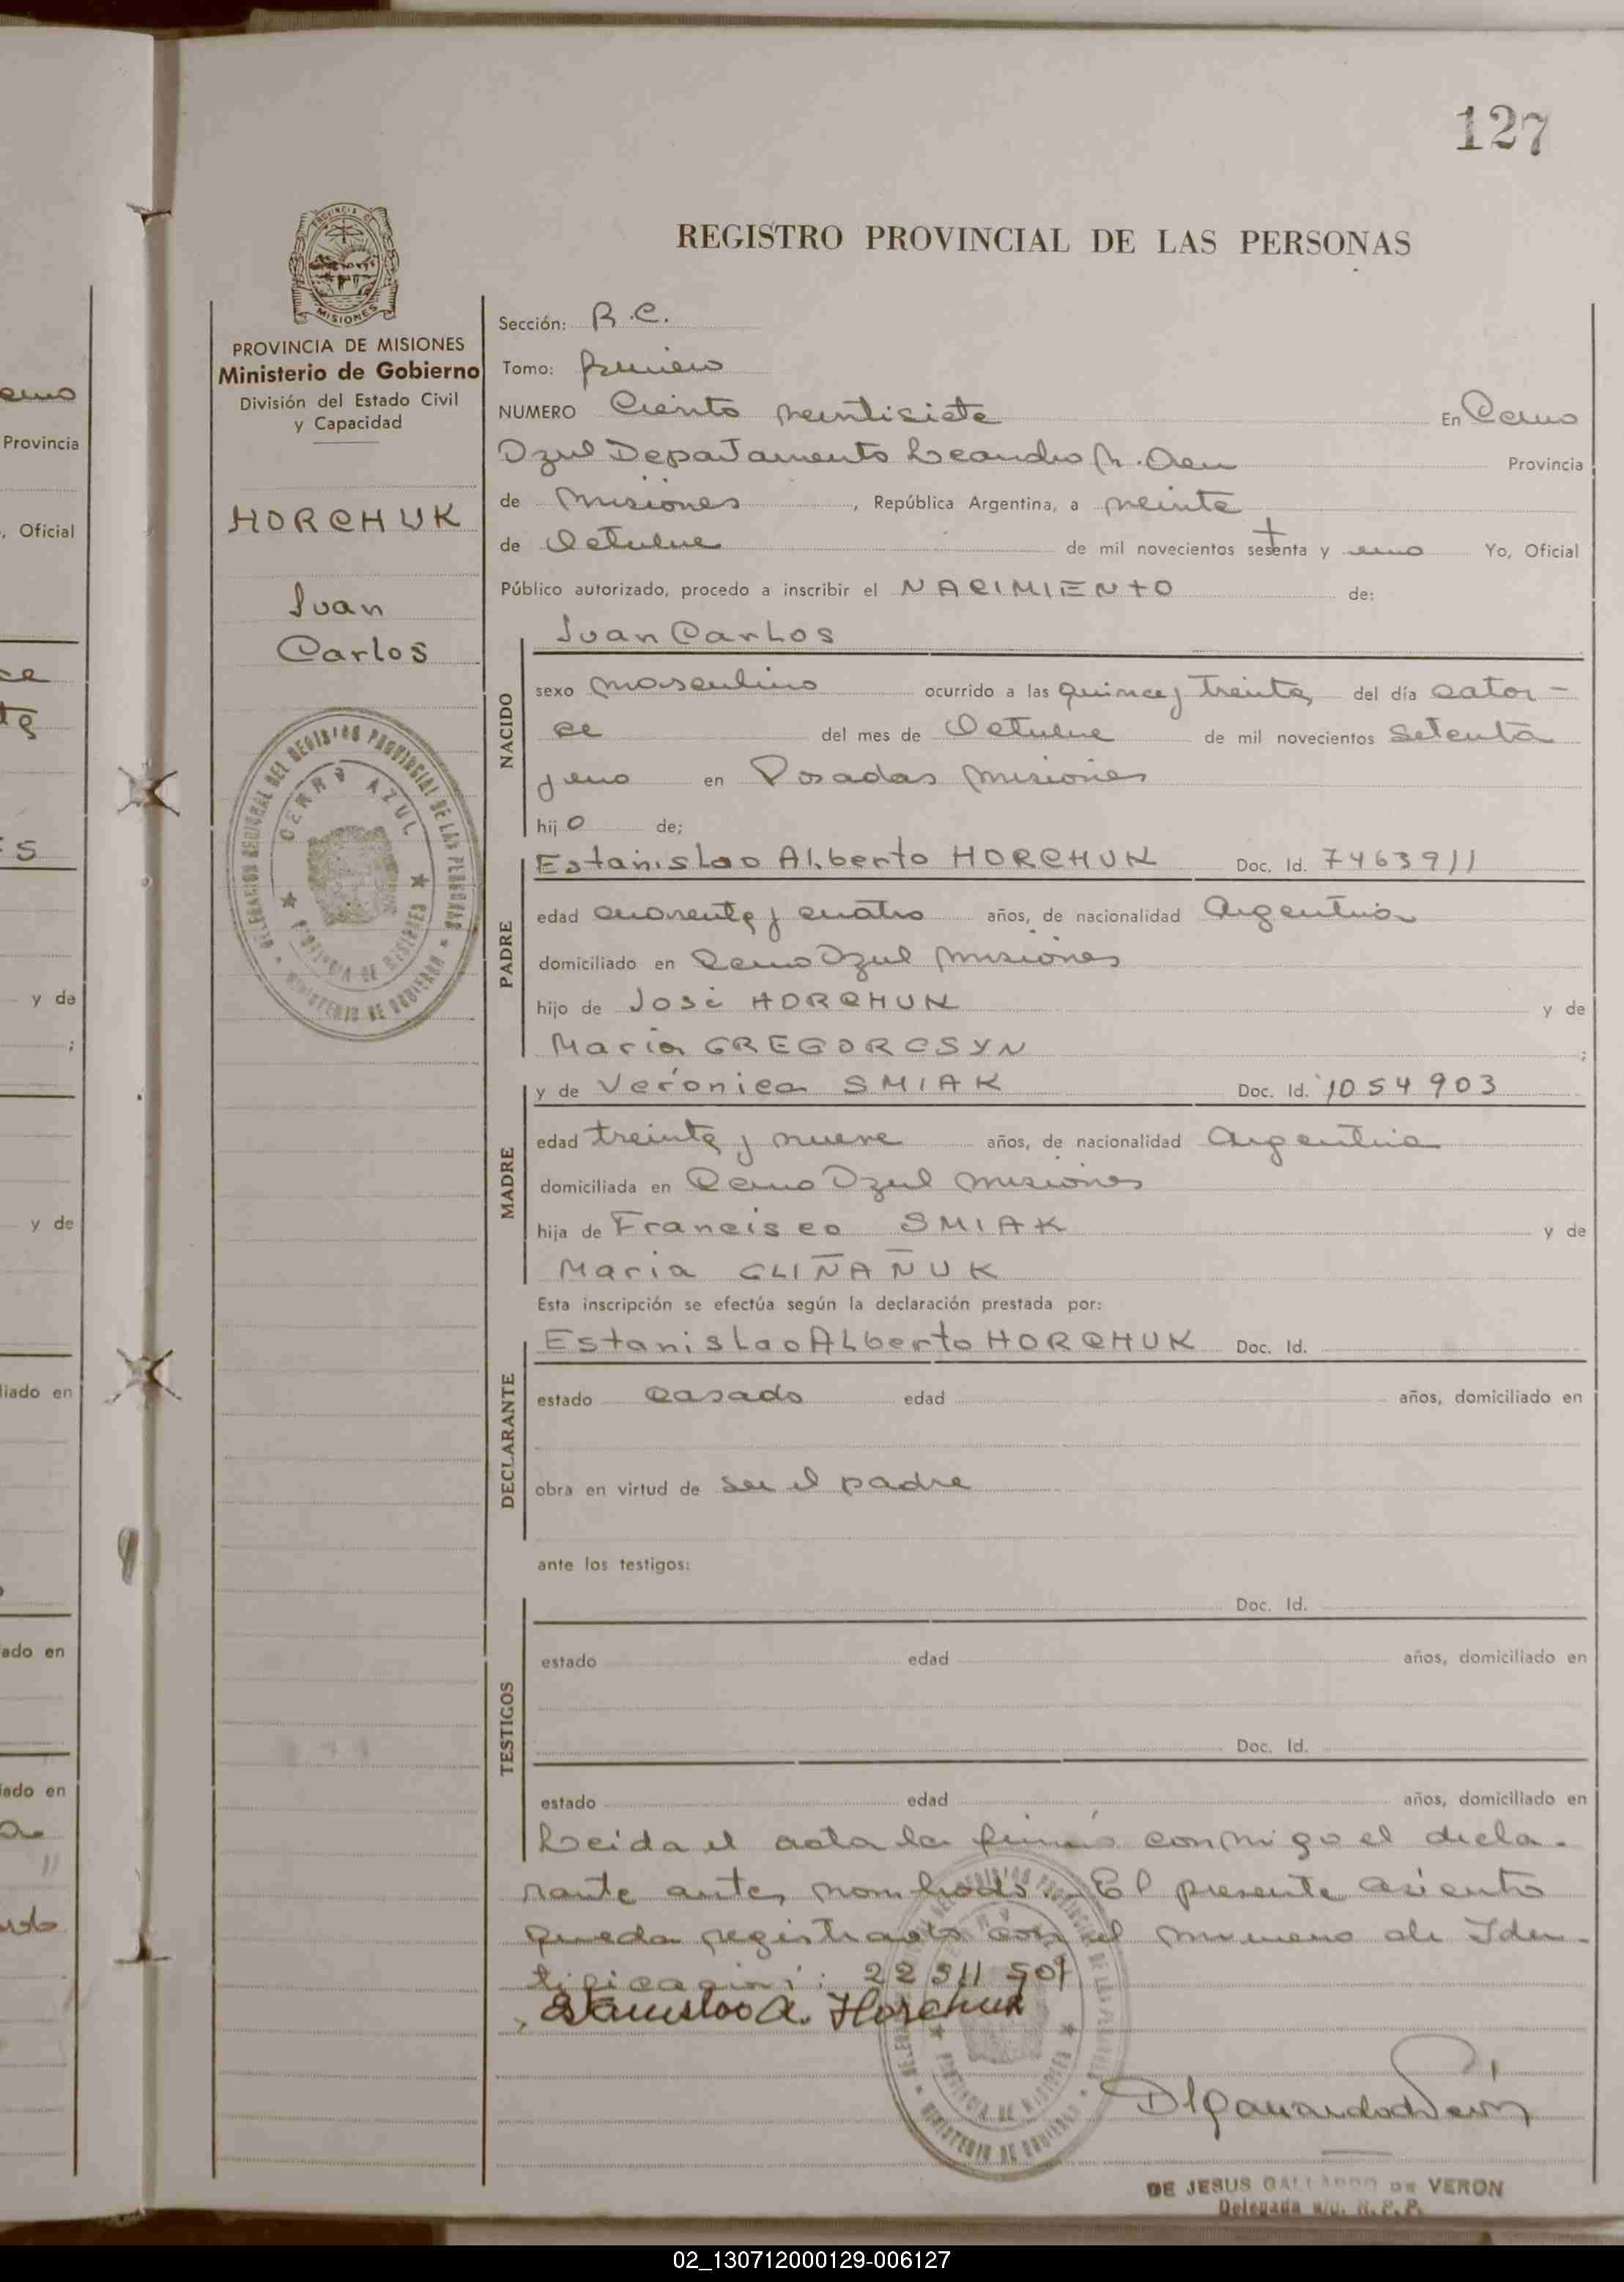 127
REGISTRO PROVINCIAL DE LAS PERSONAS
PROVINCIA DE MISIONES
Ministerio de Gobierno
División del Estado Civil
y Capacidad
HORCHUK
Juan
Carlos
Sección: R.C.
Tomo: Primero
NUMERO Ciento veintisiete En Cerro
Azul Departamento Leandro N. Alem Provincia
de Misiones, República Argentina, a veinte
de Octubre de mil novecientos setenta y uno Yo, Oficial
Público autorizado, procedo a inscribir el NACIMIENTO de:
NACIDO
Juan Carlos
sexo masculino ocurrido a las quince y treinta del día cator-
ce del mes de Octubre de mil novecientos setenta
y uno en Posadas Misiones
hijo de;
PADRE
Estanislao Alberto HORCHUK Doc. Id. 7463911
edad cuarenta y cuatro años, de nacionalidad Argentina
domiciliado en Cerro Azul Misiones
hijo de José HORCHUK y de
Maria GREGORCSYN ;
MADRE
y de Verónica SMIAK Doc. Id. 1054903
edad treinta y nueve años, de nacionalidad Argentina
domiciliada en Cerro Azul Misiones
hija de Francisco SMIAK y de
Maria GLIÑAÑUK
Esta inscripción se efectúa según la declaración prestada por:
DECLARANTE
Estanislao Alberto HORCHUK Doc. Id.
estado casado edad años, domiciliado en
obra en virtud de ser el padre
ante los testigos:
TESTIGOS
Doc. Id.
estado edad años, domiciliado en
Doc. Id.
estado edad años, domiciliado en
Leida el acta la firma conmigo el decla-
rante antes nombrado. El presente asiento
queda registrado con el numero de Iden-
tificacion: 22 311 507
Estanislao A. Horchuk
DE JESUS GALLARDO DE VERON
Delegada R.P.P.
CERRO AZUL
DELEGACION REGIONAL DEL REGISTRO PROVINCIAL DE LAS PERSONAS
PROVINCIA DE MISIONES
MINISTERIO DE GOBIERNO
02_130712000129-006127